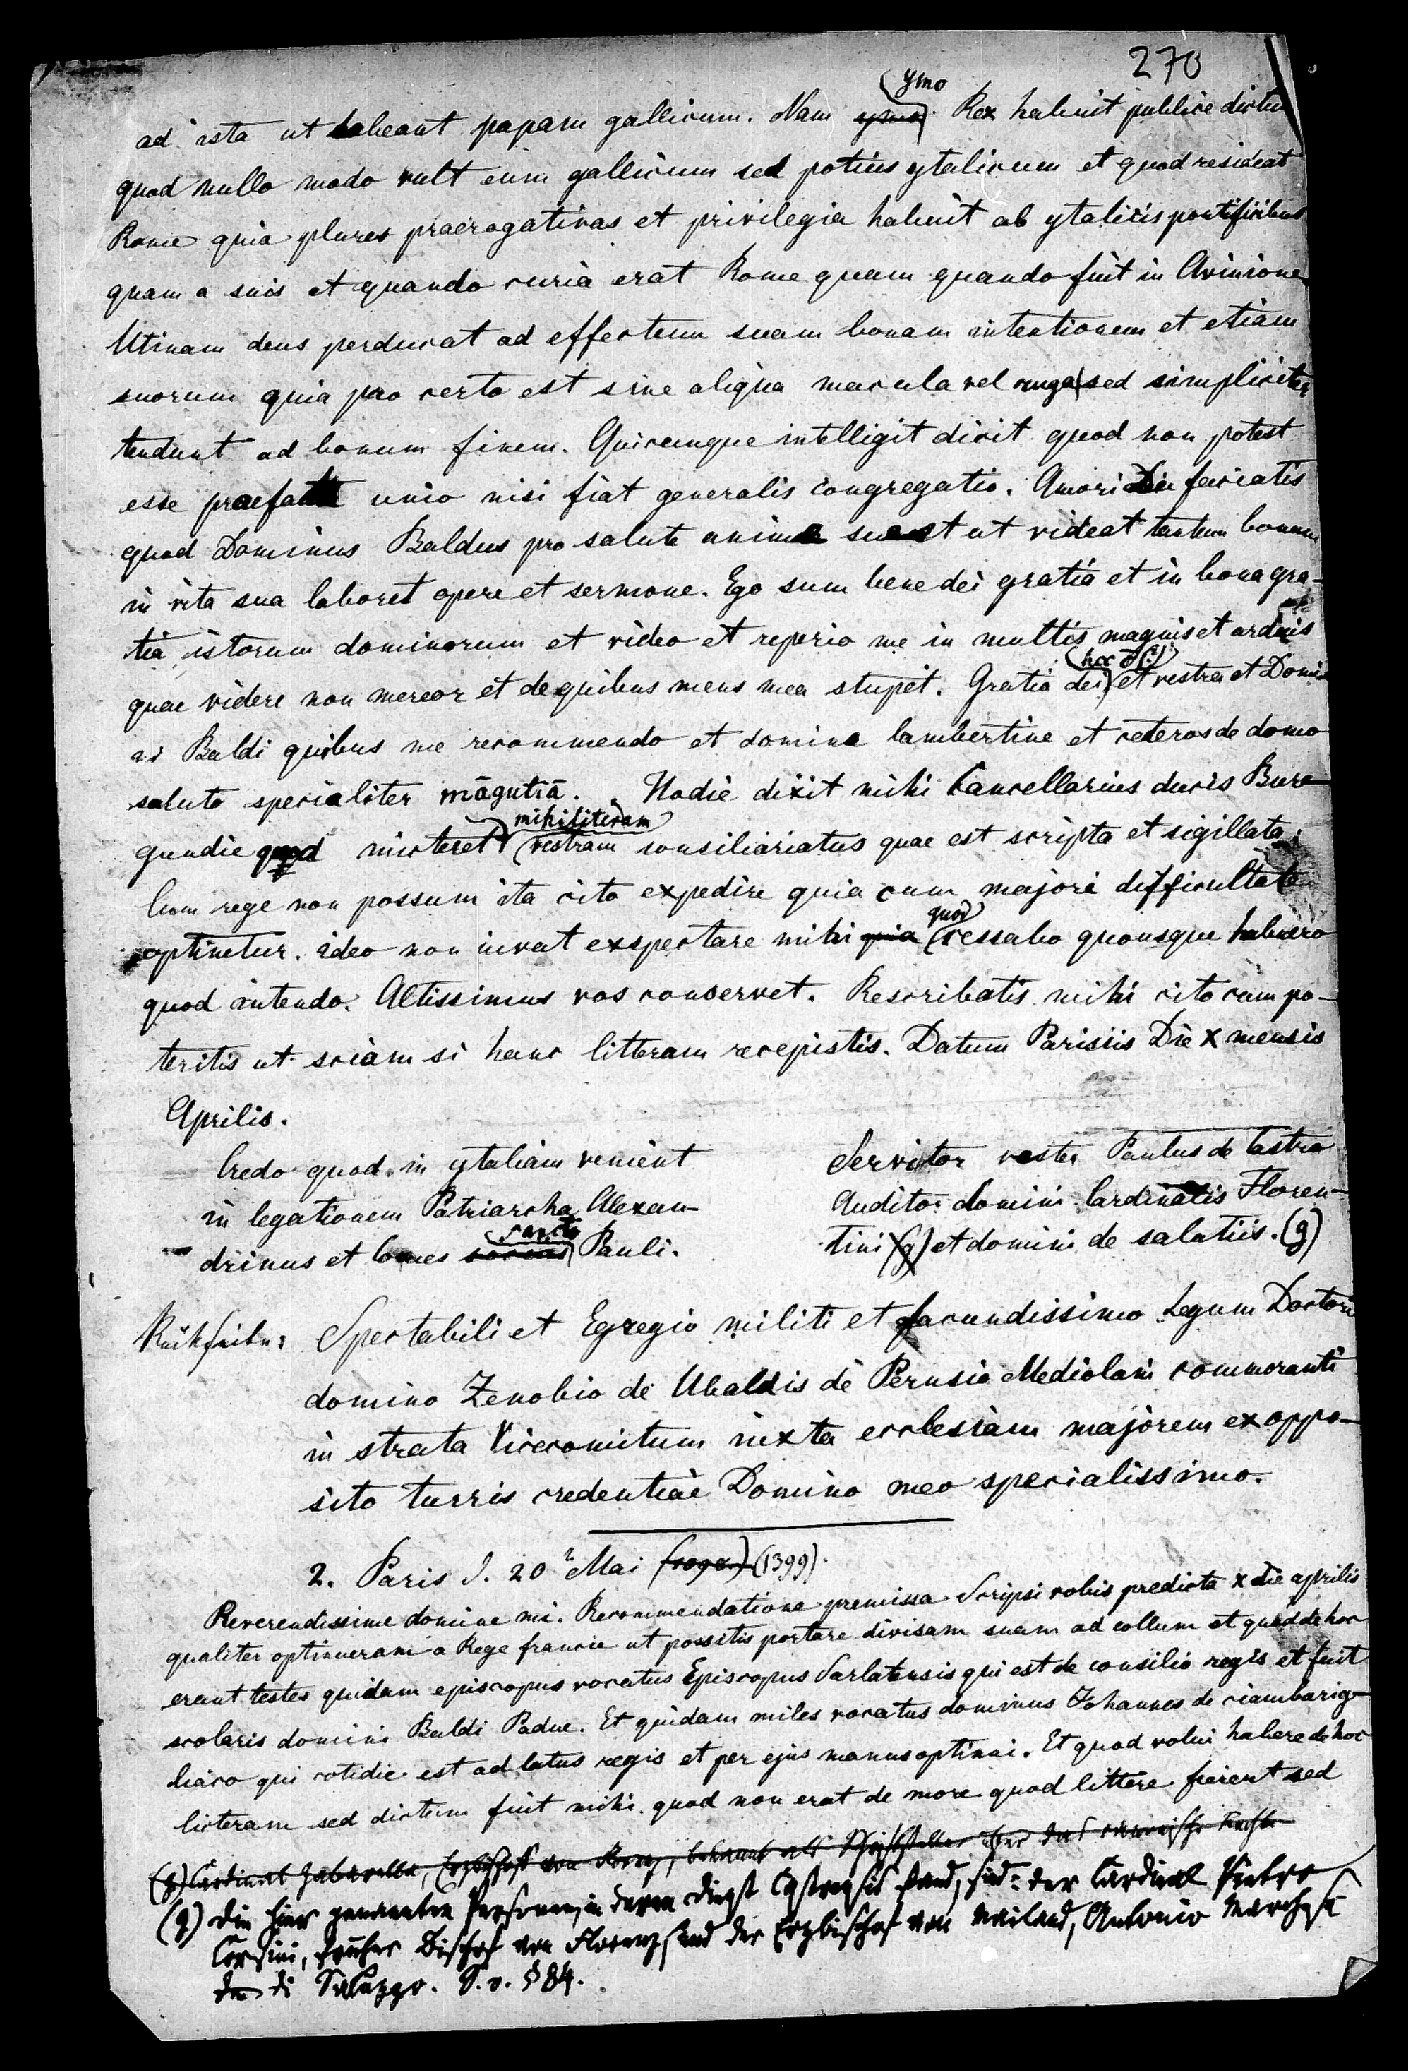 270
ymo
ad ista ut habeant papam gallicum. Nam ymo Rex habuit publice dictu
quod nullo modo vult eum gallicum sed potius ytalicum et quod resideat
Rome quia plures praerogativas et privilegia habuit ab ytalicis pontificibus
quam a suis et quando curia erat Rome quam quando fuit in Avinione
Utinam deus perducat ad effectum suam bonam intentionem et etiam
suorum quia pro certo est sine aliqua macula vel ruga sed simpliciter
tendunt ad bonum finem. Quicumque intelligit dicit quod non potest
esse praefata unio nisi fiat generalis congregatio. Amori Dei faciatis
quod Dominus Baldus pro salute anime sue et ut videat tantum bonum
in vita sua laboret opere et sermone. Ego sum bene dei gratia et in bona gra-
tia istorum dominorum et video et reperio me in multis magnis et arduis
quae videre non mereor et de quibus mens mea stupet. Gratia dei et vestra et Domi
ni Baldi quibus me recommendo et domine lambertine et ceteros de domo
saluto specialiter māgutiā. Hodie dixit mihi Cancellarius ducis Bur-
mihi literam
gundie quod micteret vestram consiliariatus quae est scripta et sigillata.
Cum rege non possum ita cito expedire quia cum majori difficultate
quod
optinetur. ideo non iuvat exspectare mihi quia cessabo quousque habuero
quod intendo. Altissimus vos conservet. Rescribatis mihi cito cum po-
teritis ut sciam si hanc litteram recepistis. Datum Parisiis Die X mensis
Aprilis.
Credo quod in ytaliam venient
in legationem Patriarcha Alexan-
sancti
drinus et Comes socius Pauli.
Servitor vester Paulus de Castro
Auditor domini Cardinalis Floren-
tini (g) et domini de salutiis. (g)
Spectabili et Egregio militi et facundissimo Legum Doctori
domino Zenobio de Ubaldis de Perusio Mediolani commoranti
in strata Vicecomitum iuxta ecclesiam majorem ex oppo-
sito turris credentiae Domino meo specialissimo.
2. Paris d. 20 Mai (1399).
Reverendissime domine mi. Recommendatione premissa. Scripsi vobis predicta X die aprilis
qualiter optinueram a Rege francie ut possitis portare divisam suam ad collum et quod de hoc
erant testes quidam episcopus vocatus Episcopus Sarlatensis qui est de consilio regis et fuit
scolaris domini Baldi Padue. Et quidam miles vocatus dominus Johannes de ciambarig-
liaco qui cotidie est ad latus regis et per ejus manus optinui. Et quod volui habere de hoc
licteram sed dictum fuit mihi quod non erat de more quod littere fierent sed
(g) Cardinal Zabarella, Erzbischof von Florenz, bekannt als Schriftsteller über das canonische Recht
(g) Die hier genannten Personen, in deren Dienst Castrensis stand, sind: der Cardinal Pietro
Corsini, früher Bischof von Florenz, und der Erzbischof von Mailand, Antonio Marchese
di Saluzzo. S. o. § 84.